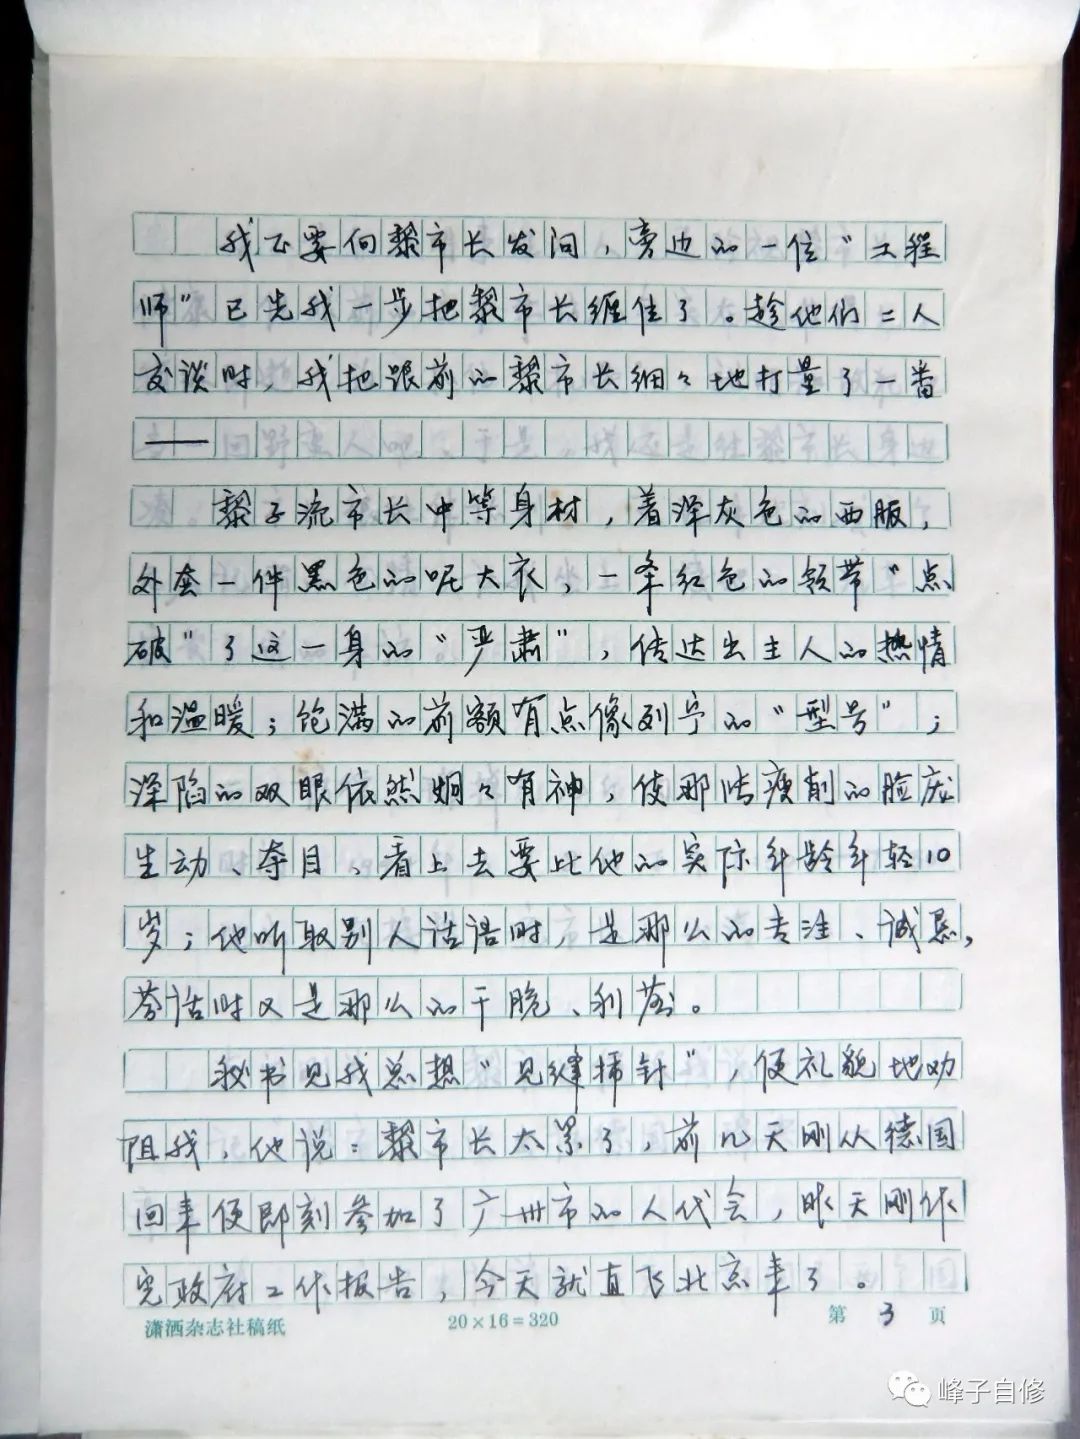 我正要向黎市长发问，旁边的一位“工程
师”已先我一步把黎市长缠住了。趁他们二人
交谈时，我把跟前的黎市长细々地打量了一番
——
黎子流市长中等身材，着深灰色的西服，
外套一件黑色的呢大衣，一条红色的领带“点
破”了这一身的“严肃”，传达出主人的热情
和温暖；饱满的前额有点像列宁的“型号”；
深陷的双眼依然炯々有神，使那张瘦削的脸庞
生动、夺目，看上去要比他的实际年龄年轻10
岁；他听取别人话语时，是那么的专注、诚恳，
答话时又是那么的干脆、利落。
秘书见我总想“见缝插针”，便礼貌地劝
阻我，他说：黎市长太累了，前几天刚从德国
回来便即刻参加了广州市的人代会，昨天刚作
完政府工作报告，今天就直飞北京来了。
潇洒杂志社稿纸 20×16=320 第3页
峰子自修